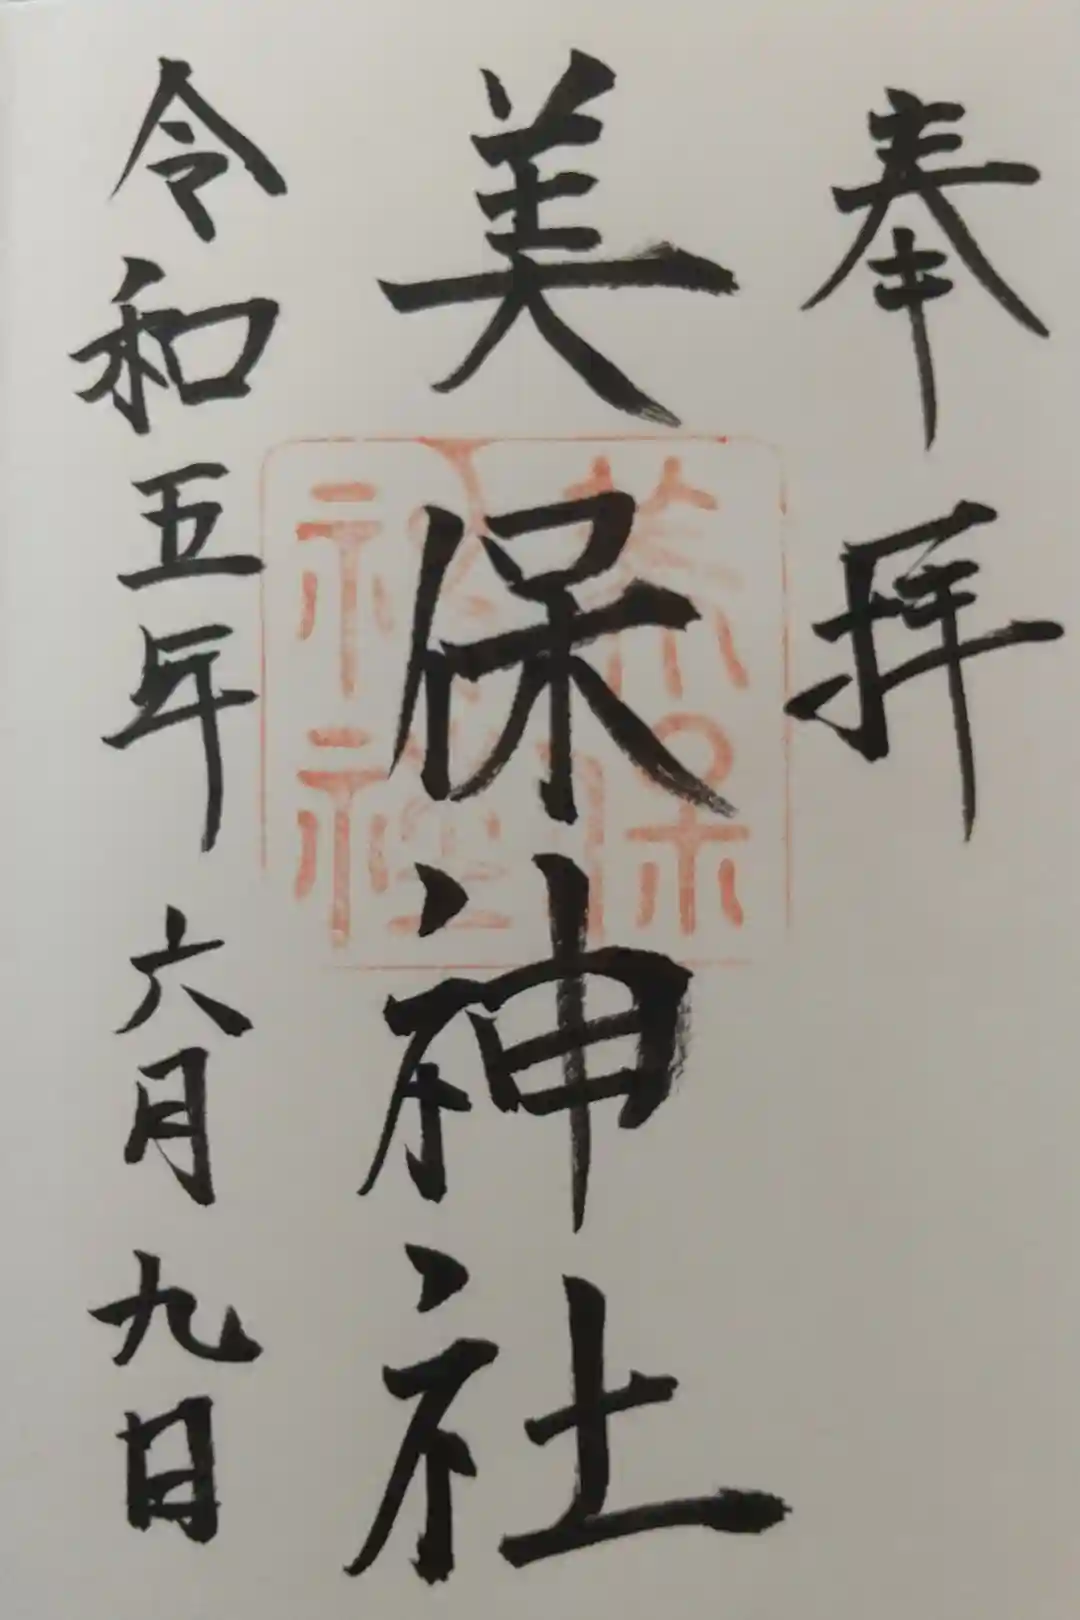 奉拝
美保神社
令和五年六月九日
美保
神社